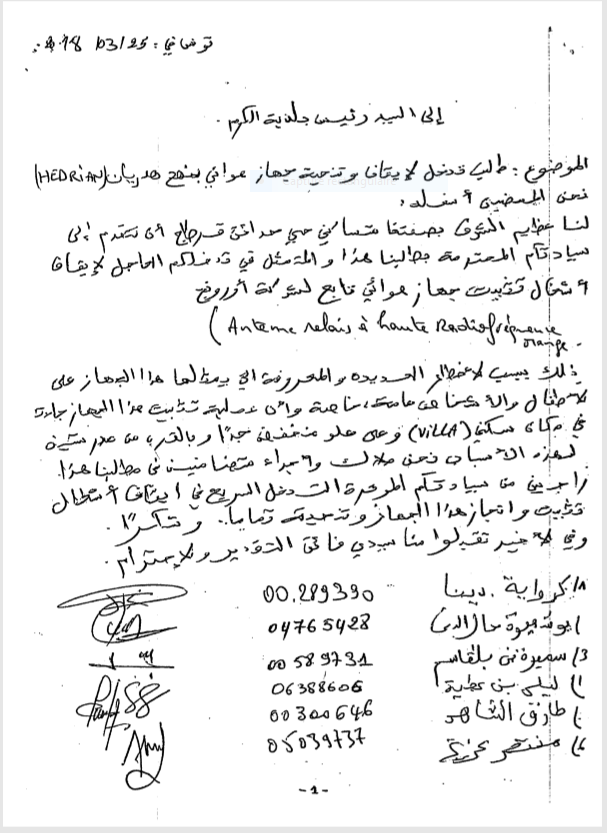 تونس في : 25/03/2018
إلى السيد رئيس بلدية الكرم.
الموضوع : طلب تدخل لإيقاف وتنحية جهاز هوائي بنهج هدريان (HEDRIAN)
نحن الممضين أسفله،
لنا عظيم الشرف بصفتنا متساكني حي حدائق قرطاج أن نتقدم إلى
سيادتكم المحترمة بطلبنا هذا والمتمثل في تدخلكم العاجل لإيقاف
أشغال تثبيت جهاز هوائي تابع لشركة أورونج
(Antenne relais à haute Radiofréquence
orange.
ذلك بسبب الأخطار العديدة والمعروفة التي يمثلها هذا الجهاز على
الأطفال والأشخاص عامة، خاصة وأن عملية تثبيت هذا الجهاز جاءت
في مكان سكني (VILLA) وعلى علو منخفض جدا وبالقرب من مدرسة
لهذه الأسباب نحن ملاك وأجراء متضامنين في مطلبنا هذا.
راجين من سيادتكم الموقرة التدخل السريع في إيقاف أشغال
تثبيت وإنجاز هذا الجهاز وتنحيته تماما. وشكرا.
وفي الأخير تقبلوا منا سيدي فائق التقدير والإحترام.
1/ كرواية . دينا 00.289390
04765428
3/ سميرة بن بلقاسم 00589731
ليلى بن عطية 06388606
طارق الشاهد 00300646
6/ منتصر 05039737
-1-